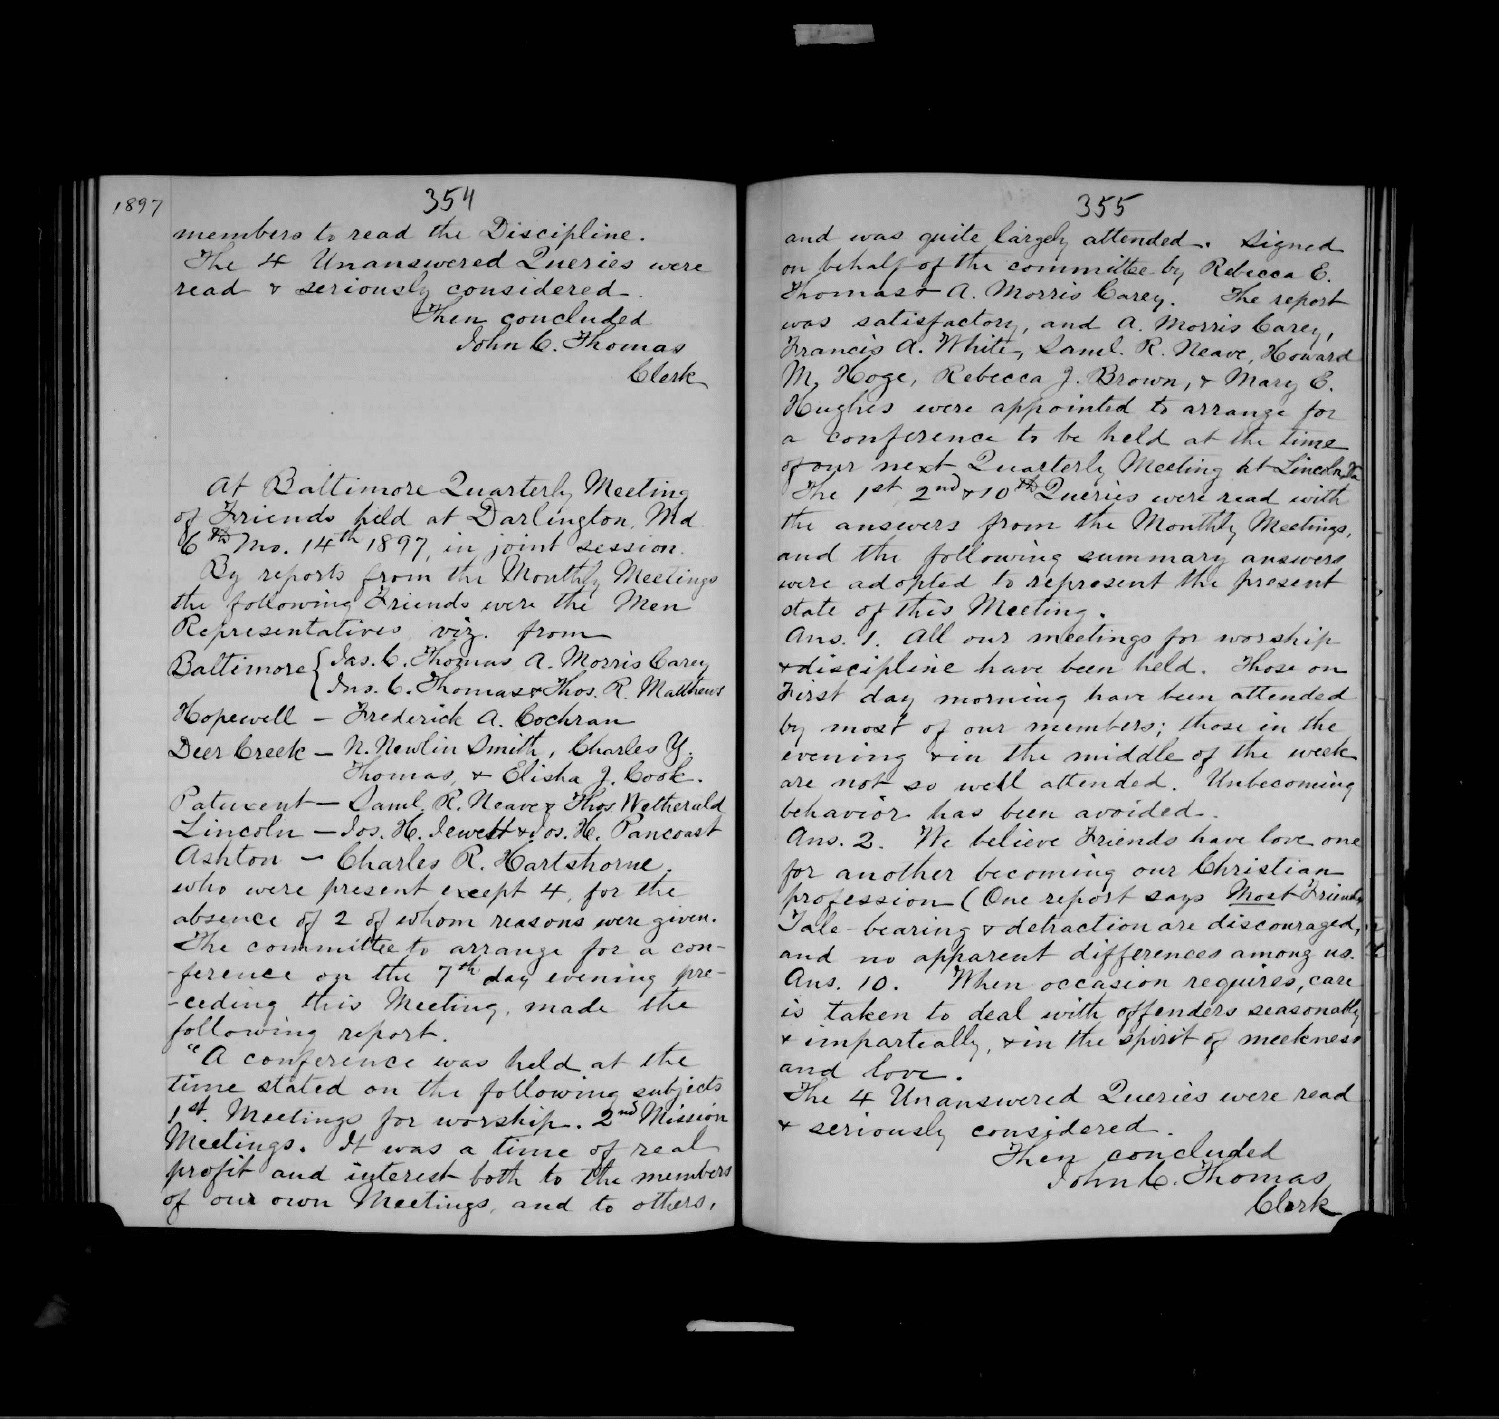 1897
354
members to read the Discipline.
The 4 Unanswered Queries were
read & seriously considered.
Then concluded
John C. Thomas
Clerk
At Baltimore Quarterly Meeting
of Friends held at Darlington, Md
6th Mo. 14th 1897, in joint session.
By reports from the Monthly Meetings
the following Friends were the Men
Representatives viz. from
Baltimore { Jas. C. Thomas A. Morris Carey
Jno. C. Thomas & Thos. R. Matthews
Hopewell – Frederick A. Cochran
Deer Creek – N. Newlin Smith, Charles Y.
Thomas, & Elisha J. Cook.
Patuxent – Saml. R. Neave & Thos Wetherald
Lincoln – Jos. H. Jewett & Jos. H. Pancoast
Ashton – Charles R. Hartshorne,
who were present except 4, for the
absence of 2 of whom reasons were given.
The committee to arrange for a con-
-ference on the 7th day evening pre-
-ceding this Meeting, made the
following report.
"A conference was held at the
time stated on the following subjects
1st. Meetings for worship. 2nd Mission
Meetings. It was a time of real
profit and interest both to the members
of our own Meetings, and to others,
355
and was quite largely attended. Signed
on behalf of the committee by Rebecca E.
Thomas & A. Morris Carey. The report
was satisfactory, and A. Morris Carey,
Francis A. White, Saml. R. Neave, Howard
M. Hoge, Rebecca J. Brown, & Mary E.
Hughes were appointed to arrange for
a conference to be held at the time
of our next Quarterly Meeting at Lincoln, Va
The 1st, 2nd & 10th Queries were read with
the answers from the Monthly Meetings,
and the following summary answers
were adopted to represent the present
state of this Meeting.
Ans. 1. All our meetings for worship
& discipline have been held. Those on
First day morning have been attended
by most of our members; those in the
evening & in the middle of the week
are not so well attended. Unbecoming
behavior has been avoided.
Ans. 2. We believe Friends have love one
for another becoming our Christian
profession (One report says Most Friends
Tale-bearing & detraction are discouraged,
and no apparent differences among us.
Ans. 10. When occasion requires, care
is taken to deal with offenders seasonably
& impartially, & in the spirit of meekness
and love.
The 4 Unanswered Queries were read
& seriously considered.
Then concluded
John C. Thomas
Clerk